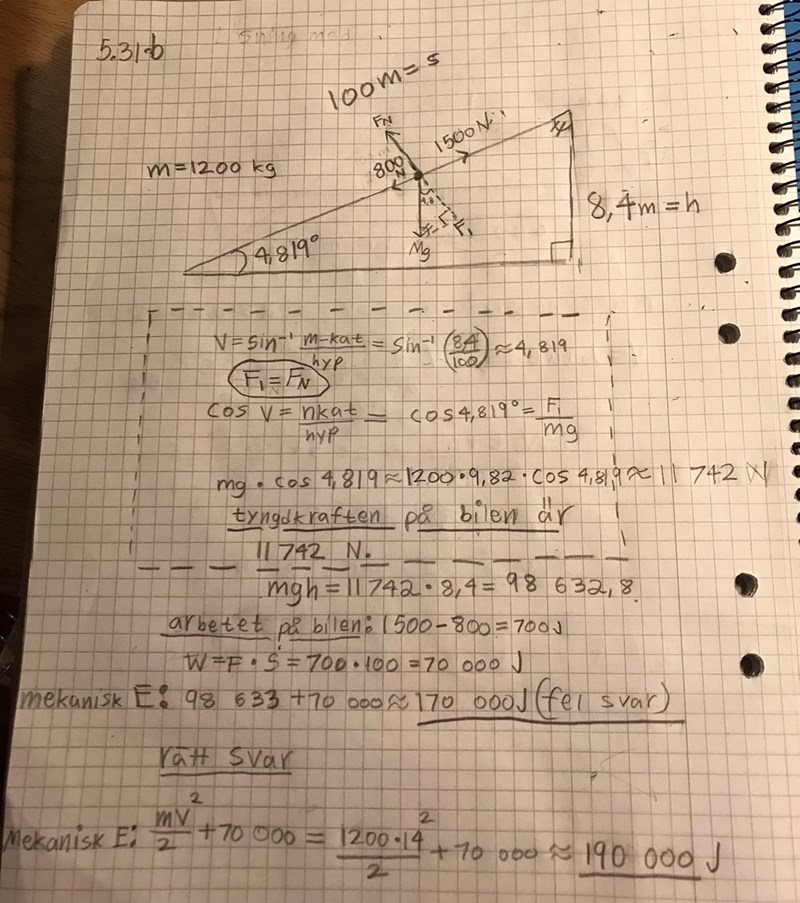 5.31.b
100m=s
FN
1500N
800
N
m=1200 kg
4,8
F₁
mg
4,819°
8,4m=h
V=sin⁻¹ m-kat/hyp = sin⁻¹(8,4/100)≈4,819
F₁=FN
cos V=nkat/hyp= cos4,819°=F₁/mg
mg・cos 4,819≈1200・9,82・cos 4,819≈11 742 N
tyngdkraften på bilen är
11 742 N.
mgh=11742・8,4=98 632,8
arbetet på bilen: 1500-800=700J
W=F・S=700・100=70 000 J
mekanisk E: 98 633+70 000≈170 000J(fel svar)
rätt svar
Mekanisk E: mV²/2+70 000 = 1200・14²/2+70 000≈190 000 J